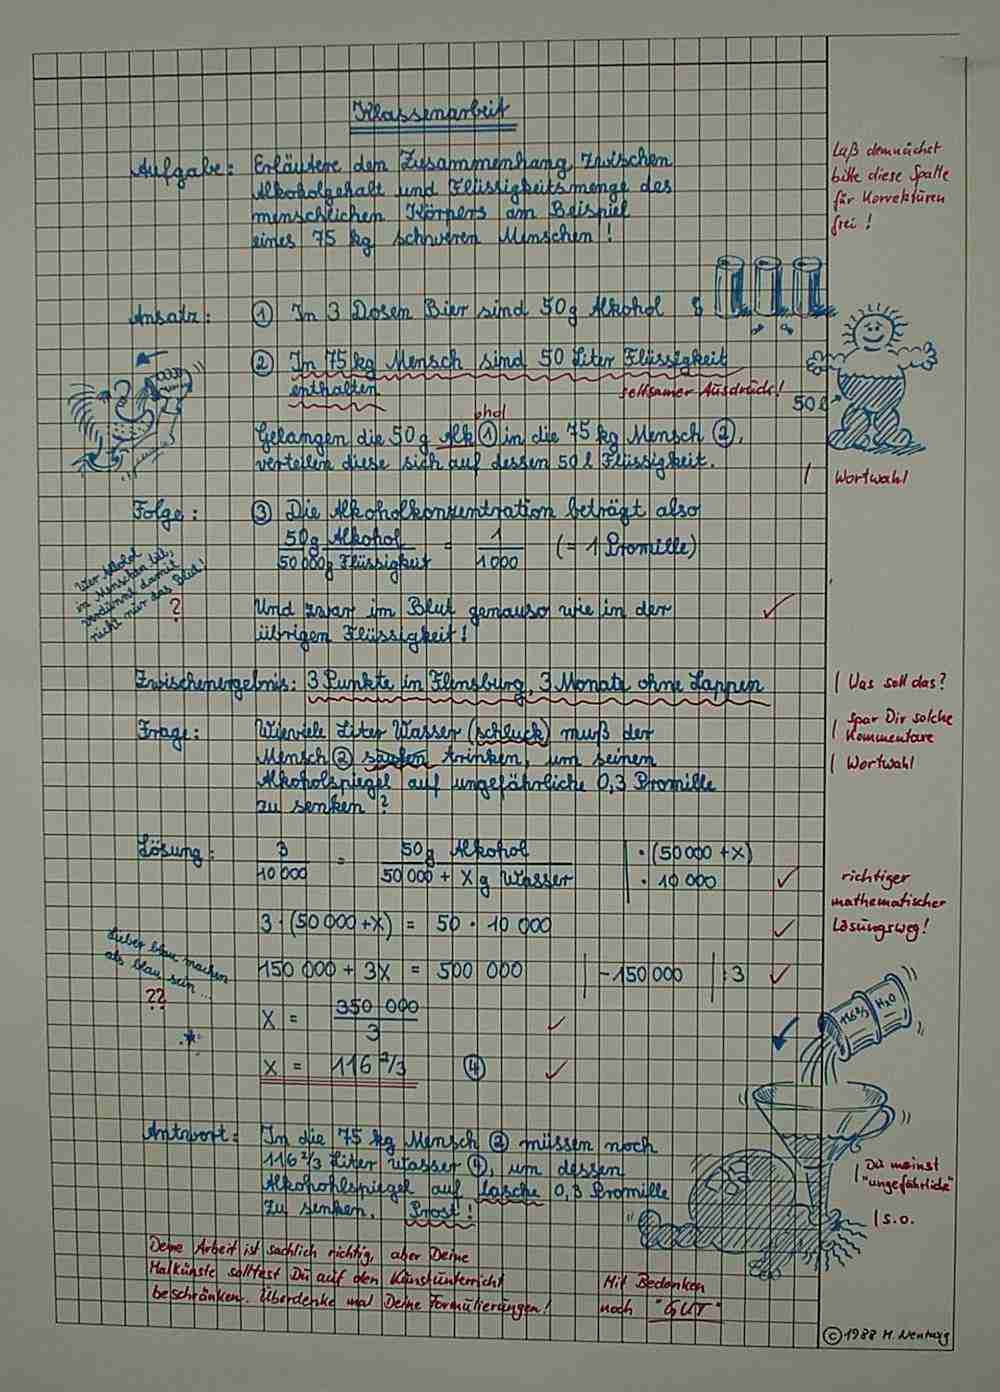 Klassenarbeit
Aufgabe: Erläutere den Zusammenhang zwischen
Alkoholgehalt und Flüssigkeitsmenge des
menschlichen Körpers am Beispiel
eines 75 kg schweren Menschen!
Laß demnächst
bitte diese Spalte
für Korrekturen
frei!
Ansatz: ① In 3 Dosen Bier sind 50g Alkohol
② In 75 kg Mensch sind 50 Liter Flüssigkeit
enthalten
seltsamer Ausdruck!
50 l
ohol
Gelangen die 50g Alk ① in die 75 kg Mensch ②,
verteilen diese sich auf dessen 50 l Flüssigkeit.
| Wortwahl
Folge: ③ Die Alkoholkonzentration beträgt also
50g Alkohol / 50000g Flüssigkeit = 1 / 1000 (= 1 Promille)
Wer Alkohol
in Menschen tut,
verdünnt damit
nicht nur das Blut!
?
Und zwar im Blut genauso wie in der
übrigen Flüssigkeit!
Zwischenergebnis: 3 Punkte in Flensburg, 3 Monate ohne Lappen
| Was soll das?
Frage: Wieviele Liter Wasser (schluck) muß der
Mensch ② saufen trinken, um seinen
Alkoholspiegel auf ungefährliche 0,3 Promille
zu senken?
| Spar Dir solche
Kommentare
| Wortwahl
Lösung: 3 / 10 000 = 50g Alkohol / 50 000 + X g Wasser | · (50 000 + X)
| · 10 000
richtiger
mathematischer
Lösungsweg!
3 · (50 000 + X) = 50 · 10 000
150 000 + 3X = 500 000 | -150 000 | : 3
Lieber blau machen
als blau sein...
??
X = 350 000 / 3
X = 116 2/3 ④
116 2/3 H₂O
Antwort: In die 75 kg Mensch ② müssen noch
116 2/3 Liter Wasser ④, um dessen
Alkohohlspiegel auf lasche 0,3 Promille
zu senken. Prost!
| Du meinst
"ungefährlich"
| s.o.
Deine Arbeit ist sachlich richtig, aber Deine
Malkünste solltest Du auf den Kunstunterricht
beschränken. Überdenke mal Deine Formulierungen!
Mit Bedenken
noch "GUT"
© 1988 M.